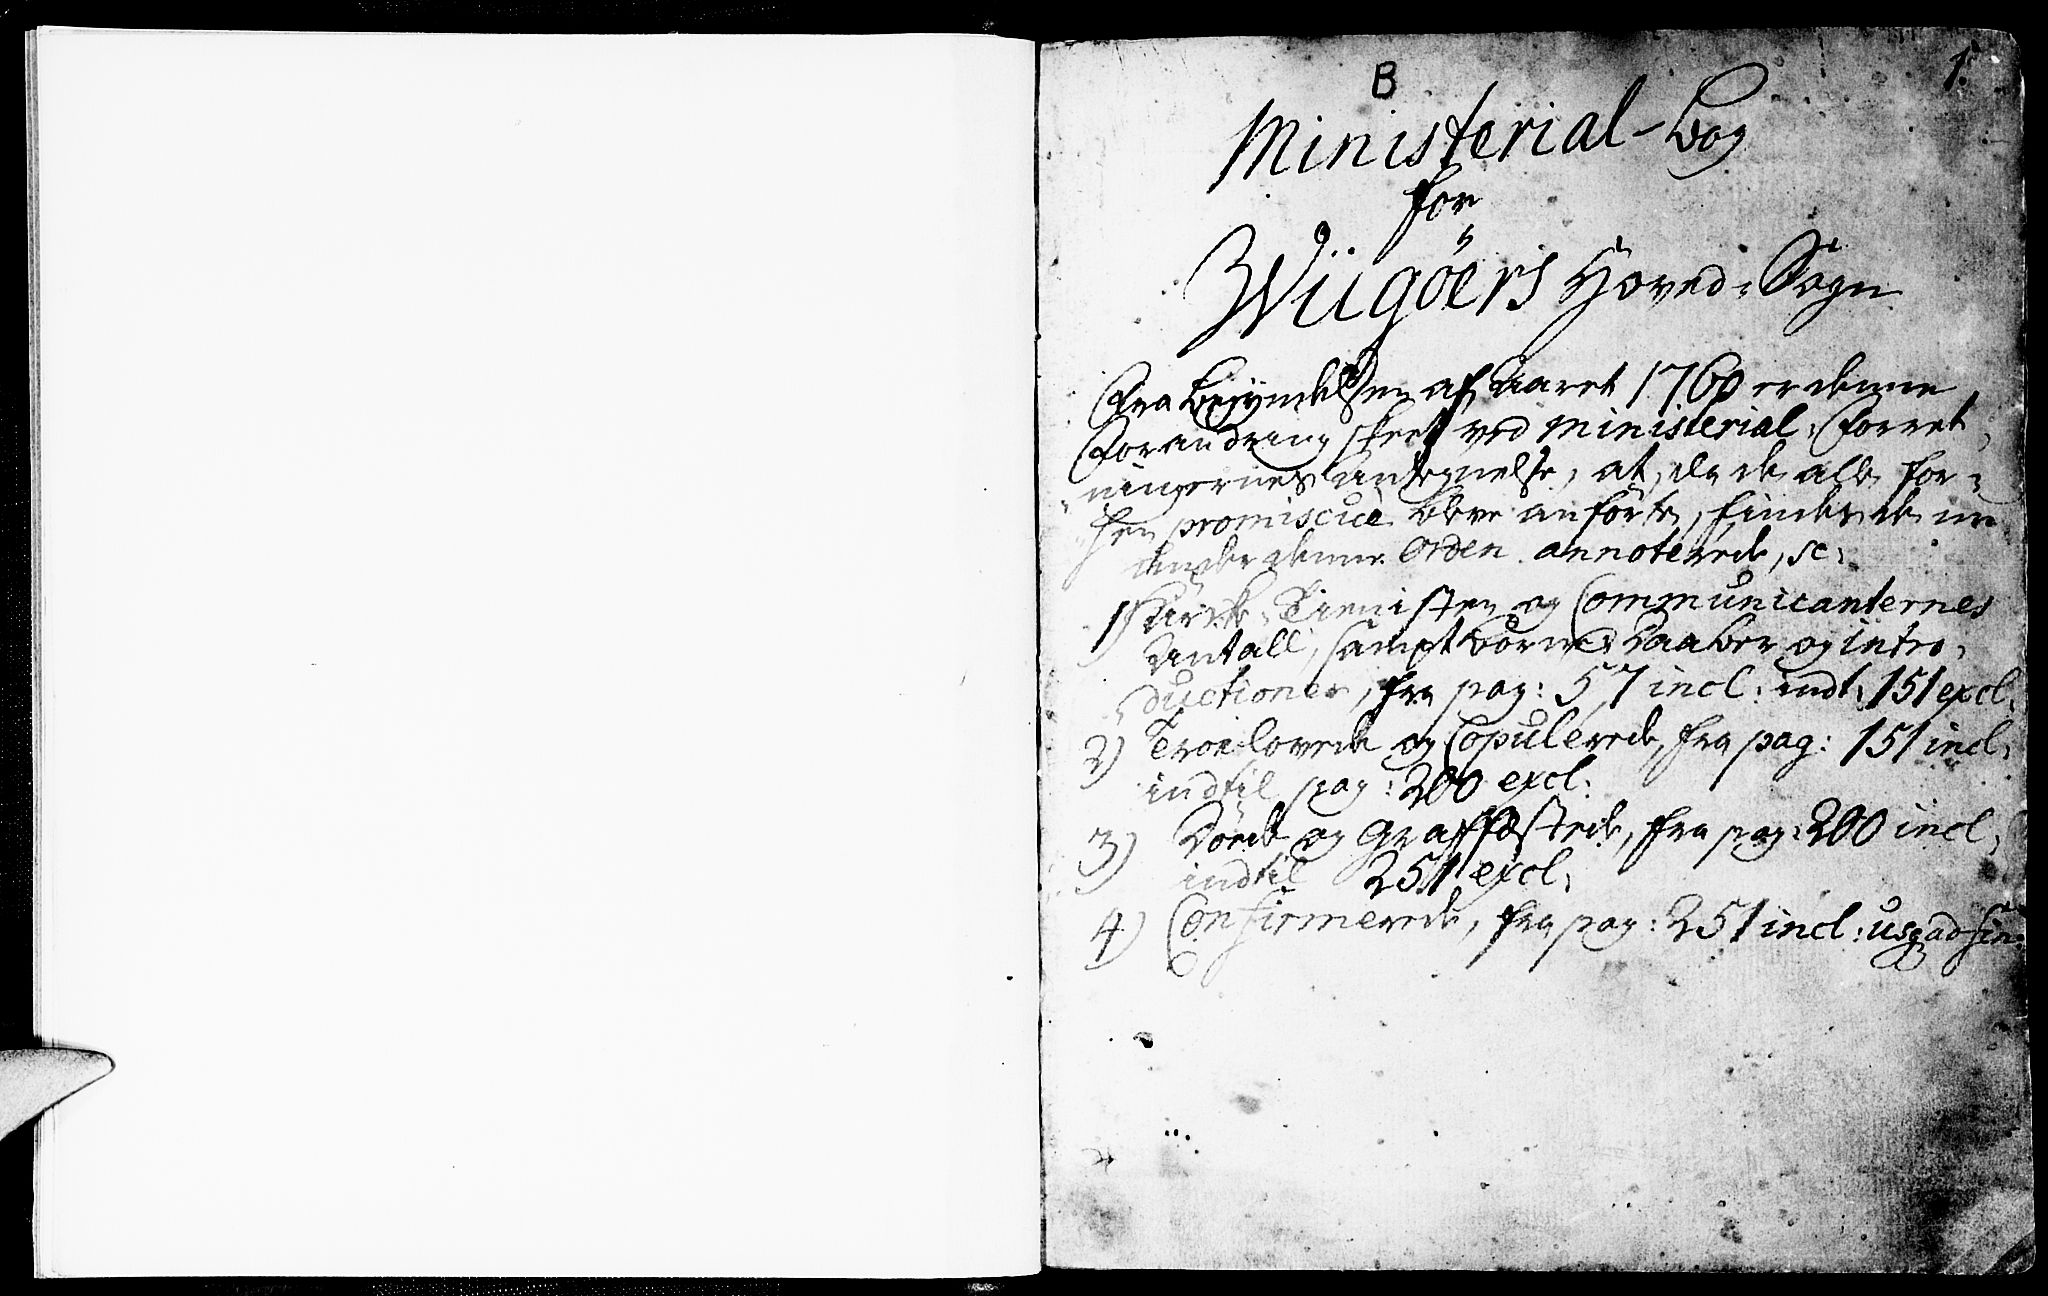 1.
B
Ministerial-Bog
for
Wiigöers Hoved-Sogn
Fra Begyndelsen af Aaret 1760 er denne
Forandring skeet ved Ministerial-Forret-
ningernes Antegnelse, at, da de alle for-
hen promiscue bleve anförte, findes de nu
under denne Orden annoterede, sc:
1) Kirke-Tienisten og Communicanternes
Antall, sampt Börnes Daaber og intro-
ductioner, fra pag: 57 incl: indt: 151 excl:
2) Troelovede og Copulerede, fra pag: 151 incl:
indtil pag: 200 excl:
3) Döde og Graffæstede, fra pag: 200 incl:
indtil 251 excl:
4) Confirmerede, fra pag: 251 incl: usq ad fin: